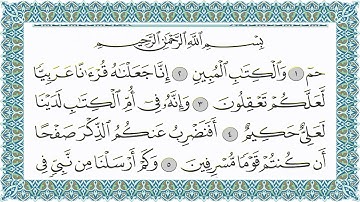 بِسْمِ اللَّهِ الرَّحْمَٰنِ الرَّحِيمِ
حمٓ ١ وَالْكِتَابِ الْمُبِينِ ٢ إِنَّا جَعَلْنَاهُ قُرْءَانًا عَرَبِيًّا
لَّعَلَّكُمْ تَعْقِلُونَ ٣ وَإِنَّهُ فِي أُمِّ الْكِتَابِ لَدَيْنَا
لَعَلِيٌّ حَكِيمٌ ٤ أَفَنَضْرِبُ عَنكُمُ الذِّكْرَ صَفْحًا
أَن كُنتُمْ قَوْمًا مُّسْرِفِينَ ٥ وَكَمْ أَرْسَلْنَا مِن نَّبِيٍّ فِي